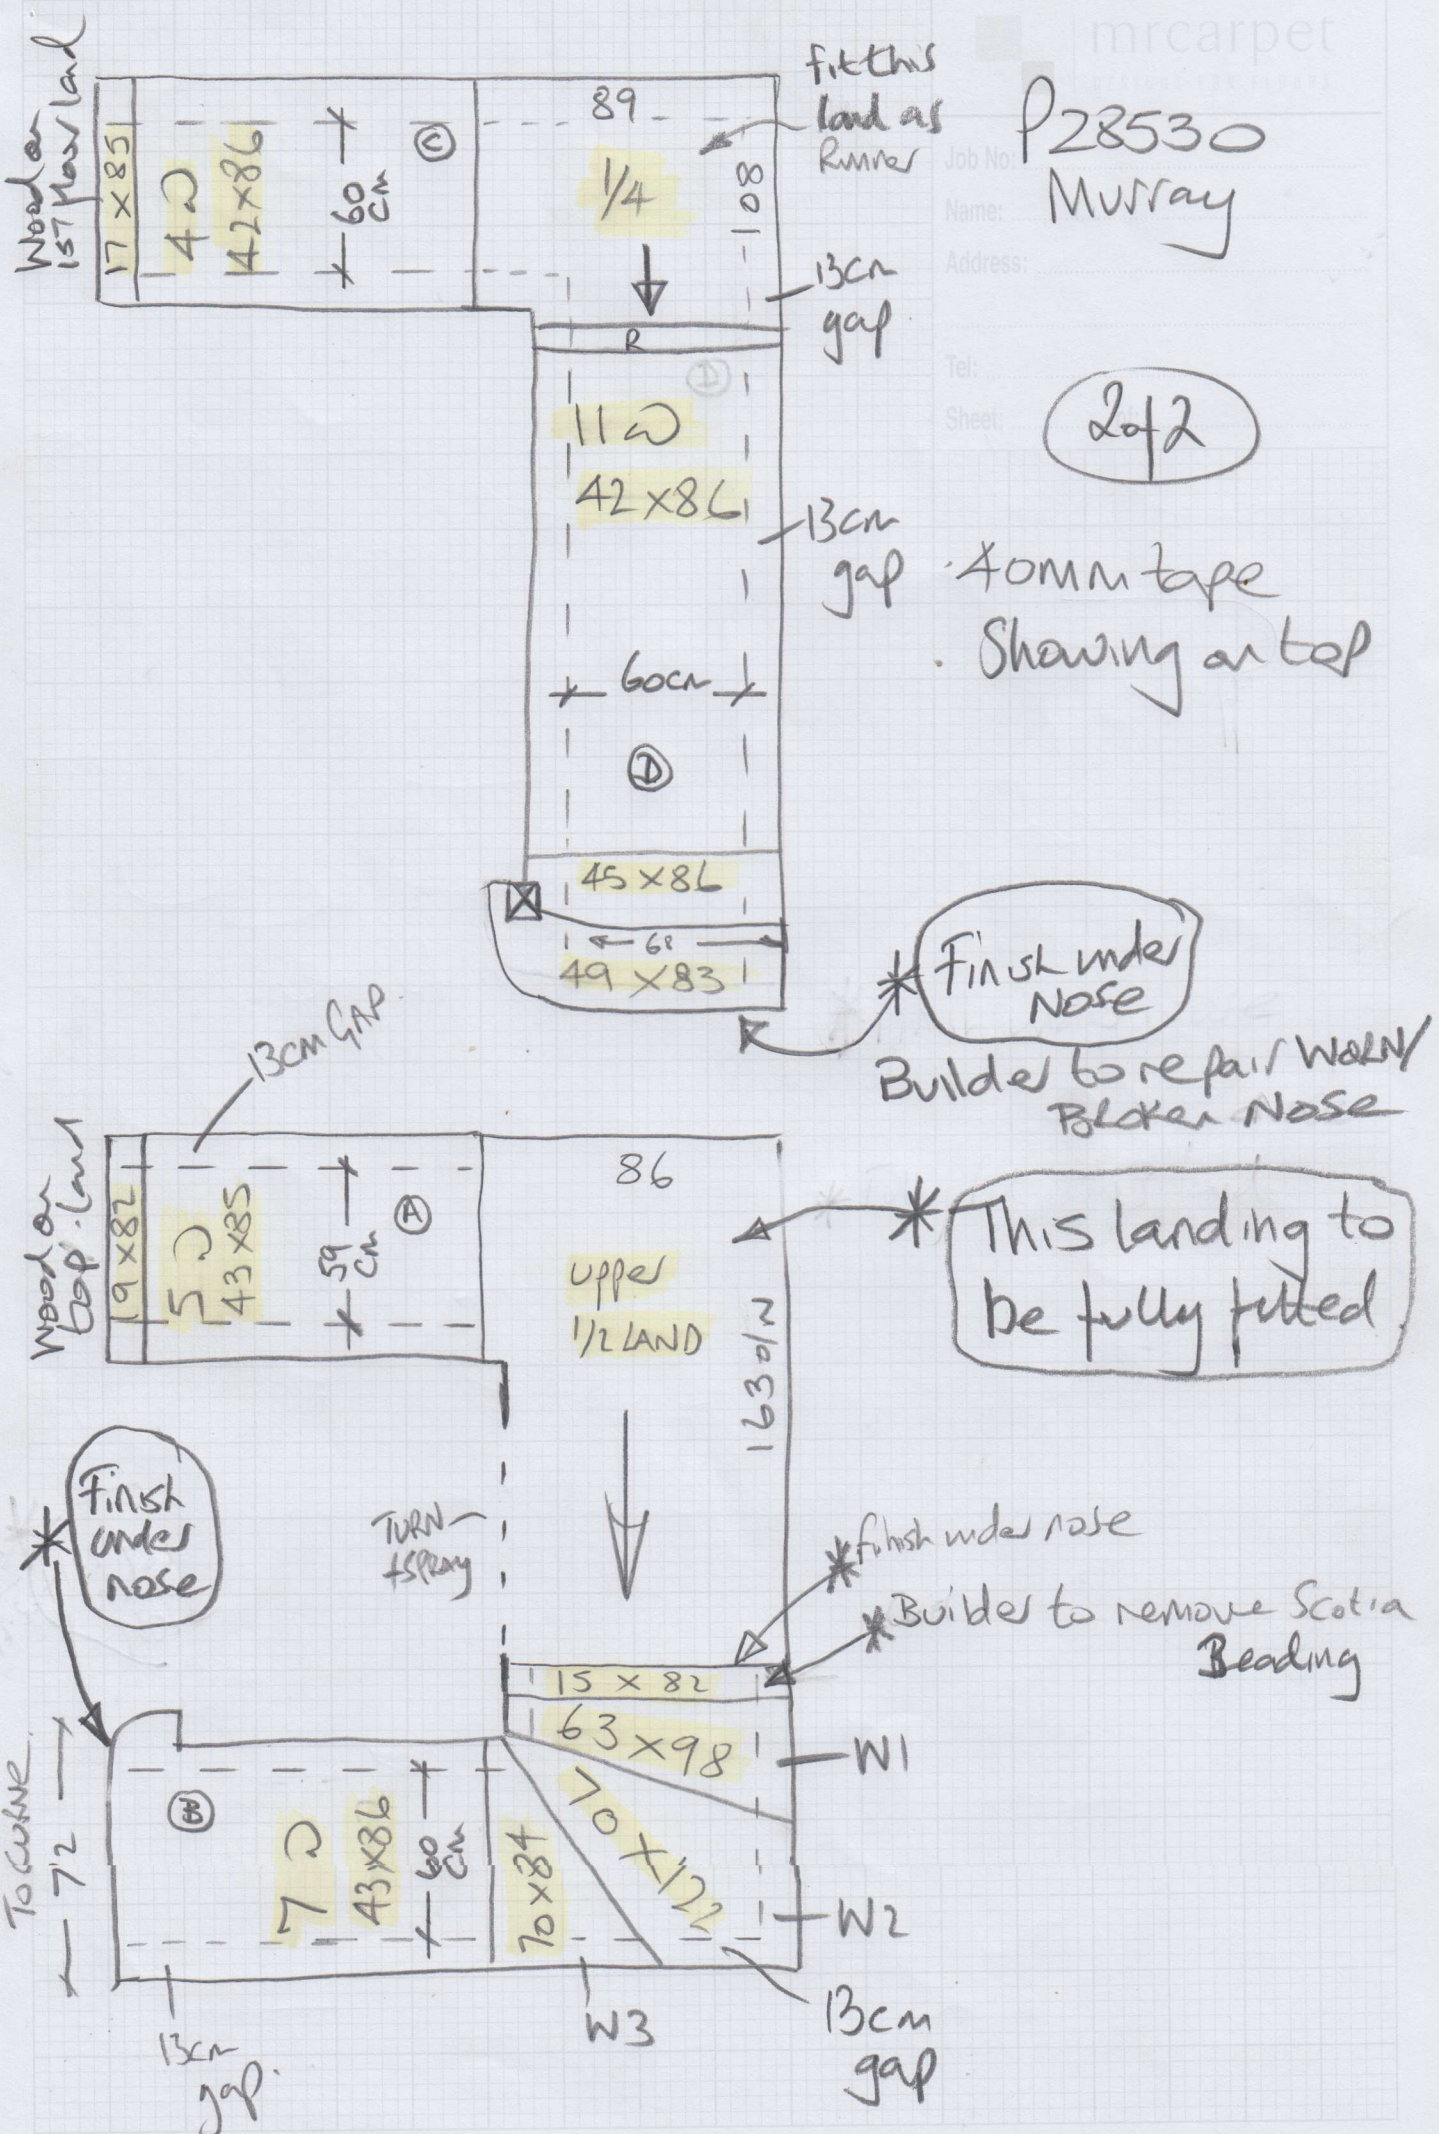 mrcarpet
Job No:
P28530
Name:
Murray
Address:
Tel:
Sheet:
2of2
40mm tape
Showing on top
Wood on
1st floor land
17 x 85
4
42x86
60
cm
C
89
1/4
108
fit this
land as
Runner
13cm
gap
R
D
11
42x86
13cm
gap
60cm
D
45x86
68
49x83
Finish under
Nose
Builder to repair Worn/
Broken Nose
13cm GAP
Wood on
top land
19x82
5
43x85
59
cm
A
86
upper
1/2 LAND
163 o/N
This landing to
be fully fitted
Finish
under
nose
TURN
+SPRAY
finish under nose
Builder to remove Scotia
Beading
15 x 82
63x98
W1
70x122
W2
70x84
W3
B
7
43x86
60
cm
To CURVE
72
13cm
gap
13cm
gap